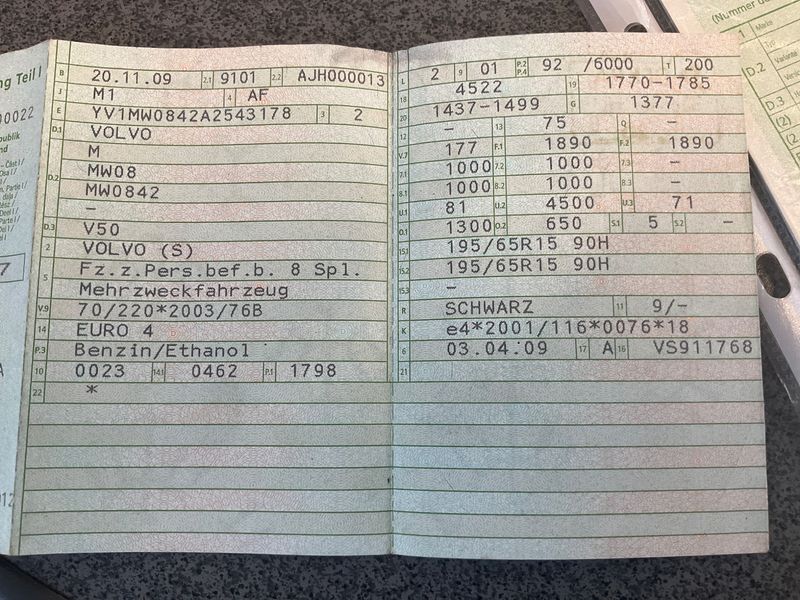 ng Teil I
00022
publik
nd
7
012
B 20.11.09 2.1 9101 2.2 AJH000013
J M1 4 AF
E YV1MW0842A2543178 3 2
D.1 VOLVO
M
D.2 MW08
MW0842
–
D.3 V50
2 VOLVO (S)
5 Fz.z.Pers.bef.b. 8 Spl.
Mehrzweckfahrzeug
V.9 70/220*2003/76B
14 EURO 4
P.3 Benzin/Ethanol
10 0023 14.1 0462 P.1 1798
22 *
L 2 9 01 P.2 P.4 92 /6000 T 200
18 4522 19 1770-1785
20 1437-1499 G 1377
12 – 13 75 Q –
V.7 177 F.1 1890 F.2 1890
7.1 1000 7.2 1000 7.3 –
8.1 1000 8.2 1000 8.3 –
U.1 81 U.2 4500 U.3 71
O.1 1300 O.2 650 S.1 5 S.2 –
15.1 195/65R15 90H
15.2 195/65R15 90H
15.3 –
R SCHWARZ 11 9/–
K e4*2001/116*0076*18
6 03.04.09 17 A 16 VS911768
21
(Nummer de
1 Marke
Typ
D.2 Variante
D.3
(2)